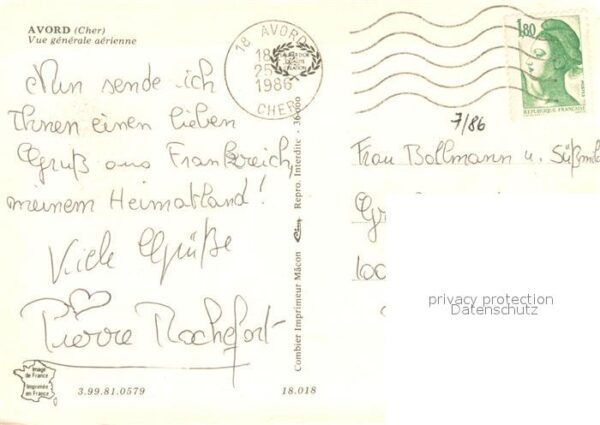 AVORD (Cher)
Vue générale aérienne
18 AVORD
18
25
1986
CHER
1,80
REPUBLIQUE FRANÇAISE
Nun sende ich
Ihnen einen lieben
Gruß aus Frankreich,
meinem Heimatland!
Viele Grüße
Pierre Rochefort
7/86
Frau Bollmann u. Süßmil
Combier Imprimeur Mâcon Cim Repro. Interdite - 364000
privacy protection
Datenschutz
Image
de France
Imprimée
en France
3.99.81.0579
18.018